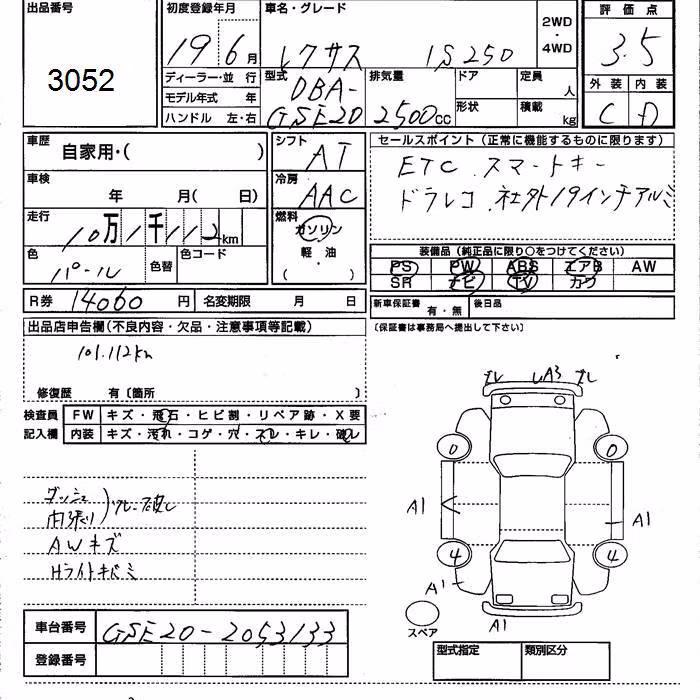 出品番号 初度登録年月 車名・グレード 2WD・4WD 評価点
3052 19 6月 レクサス IS250 3.5
ディーラー・並行 型式 DBA-GSE20 排気量 2500cc ドア 定員 人 外装 内装
モデル年式 年 C D
ハンドル 左・右 形状 積載 kg
車歴 自家用・( ) シフト AT セールスポイント(正常に機能するものに限ります)
車検 年 月( 日) 冷房 AAC ETC.スマートキー
ドラレコ.社外19インチアルミ
走行 10万1千112km 燃料 ガソリン・軽油( )
色 パール 色替 色コード
装備品(純正品に限り○をつけてください)
PS PW ABS エアB AW
SR ナビ TV カワ
R券 14060円 名変期限 月 日 新車保証書 有・無 後日品
出品店申告欄(不良内容・欠品・注意事項等記載) (保証書は事務局へ提出して下さい)
101.112km
修復歴 有〔箇所 〕
検査員 FW キズ・飛石・ヒビ割・リペア跡・X要
記入欄 内装 キズ・汚れ・コゲ・穴・スレ・キレ・破レ
A3
0 0
A1 A1
4 4
A1
A1
スペア
ダッシュ
内張り
AWキズ
Hライトキバミ
車台番号 GSE20-2053133
登録番号
型式指定 類別区分